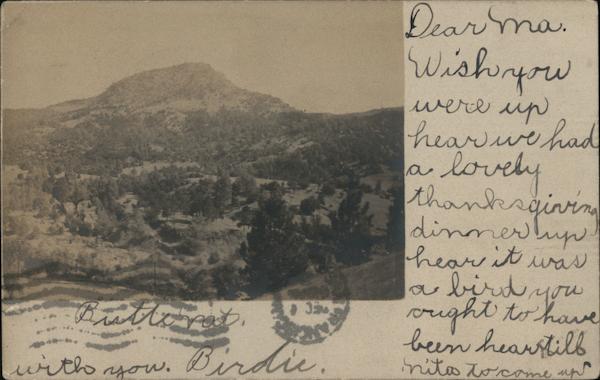 Dear Ma.
Wish you
were up
hear we had
a lovely
thanksgiving
dinner up
hear it was
a bird you
ought to have
been hear till
to come up
with you. Birdie.